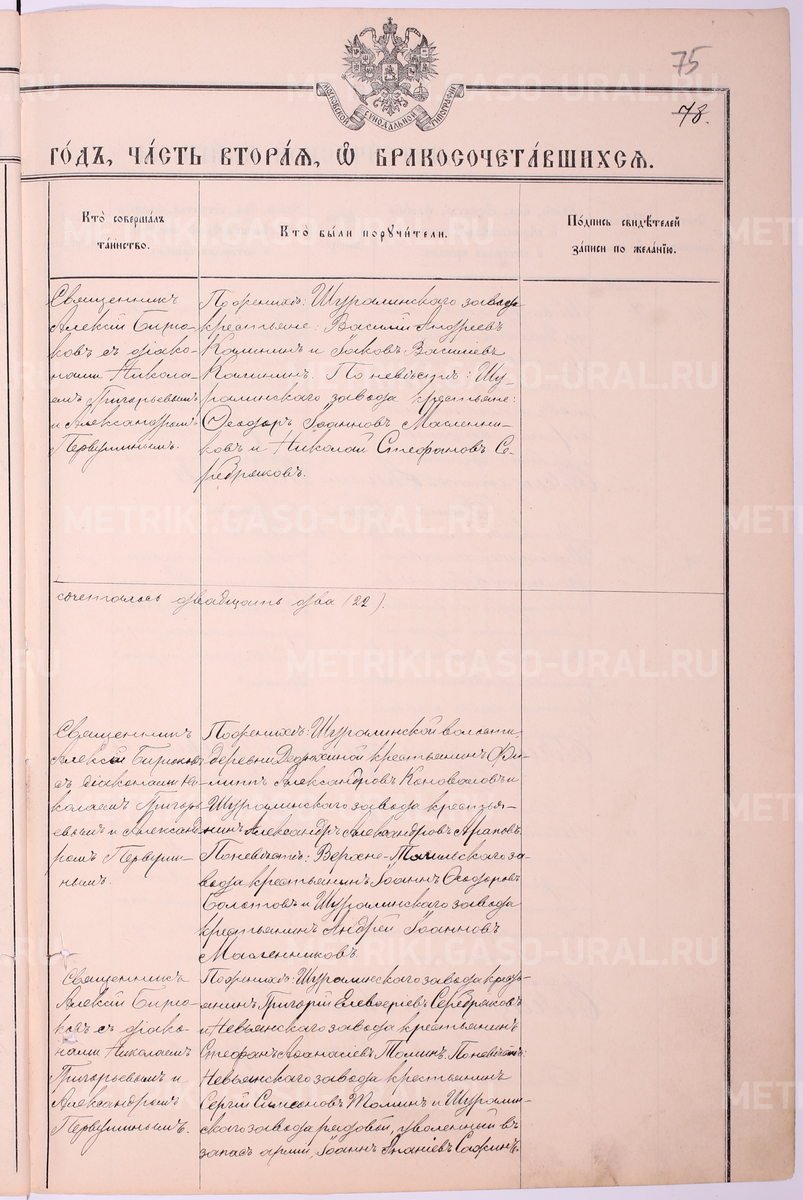 75
78.
МОСКОВСКОЙ СѴНОДАЛЬНОЙ ТИПОГРАФІИ
ГО́ДЪ, ЧА́СТЬ ВТОРА́Я, Ѽ БРАКОСОЧЕТА́ВШИХСЯ.
Кто̀ соверша́лъ
та́инство.
Кто̀ бы́ли поручи́тели.
По́дпись свидѣ́телей
за́писи по жела́нію.
Священникъ
Алексій Бирю-
ковъ съ діако-
нами Никола-
емъ Григорьевымъ
и Александромъ
Первушинымъ.
По женихѣ: Шуралинскаго завода
крестьяне: Василій Андреевъ
Калининъ и Іаковъ Василіевъ
Калининъ. По невѣстѣ: Шу-
ралинскаго завода крестьяне:
Ѳеодоръ Іоанновъ Масленни-
ковъ и Николай Стефановъ Се-
ребряковъ.
сочеталось двадцать два (22).
Священникъ
Алексій Бирюковъ
съ діаконами Ни-
колаемъ Григорь-
евымъ и Александ-
ромъ Первуши-
нымъ.
По женихѣ: Шуралинской волости
деревни крестьянинъ Фи-
липпъ Александровъ Коноваловъ и
Шуралинскаго завода крестья-
нинъ Александръ Александровъ Араповъ.
По невѣстѣ: Верхне-Тагильскаго за-
вода крестьянинъ Іоаннъ Ѳеодоровъ
Болотовъ и Шуралинскаго завода
крестьянинъ Андрей Іоанновъ
Масленниковъ.
Священникъ
Алексій Бирю-
ковъ съ діако-
нами Николаемъ
Григорьевымъ и
Александромъ
Первушинымъ.
По женихѣ: Шуралинскаго завода кресть-
янинъ Григорій Елевѳеріевъ Серебряковъ
и Невьянскаго завода крестьянинъ
Стефанъ Аѳанасіевъ Толминъ. По невѣстѣ:
Невьянскаго завода крестьянинъ
Сергій Симеоновъ Толминъ и Шуралин-
скаго завода рядовой, уволенный въ
запасъ арміи, Іоаннъ Ананіевъ Сафинъ.
METRIKI.GASO-URAL.RU